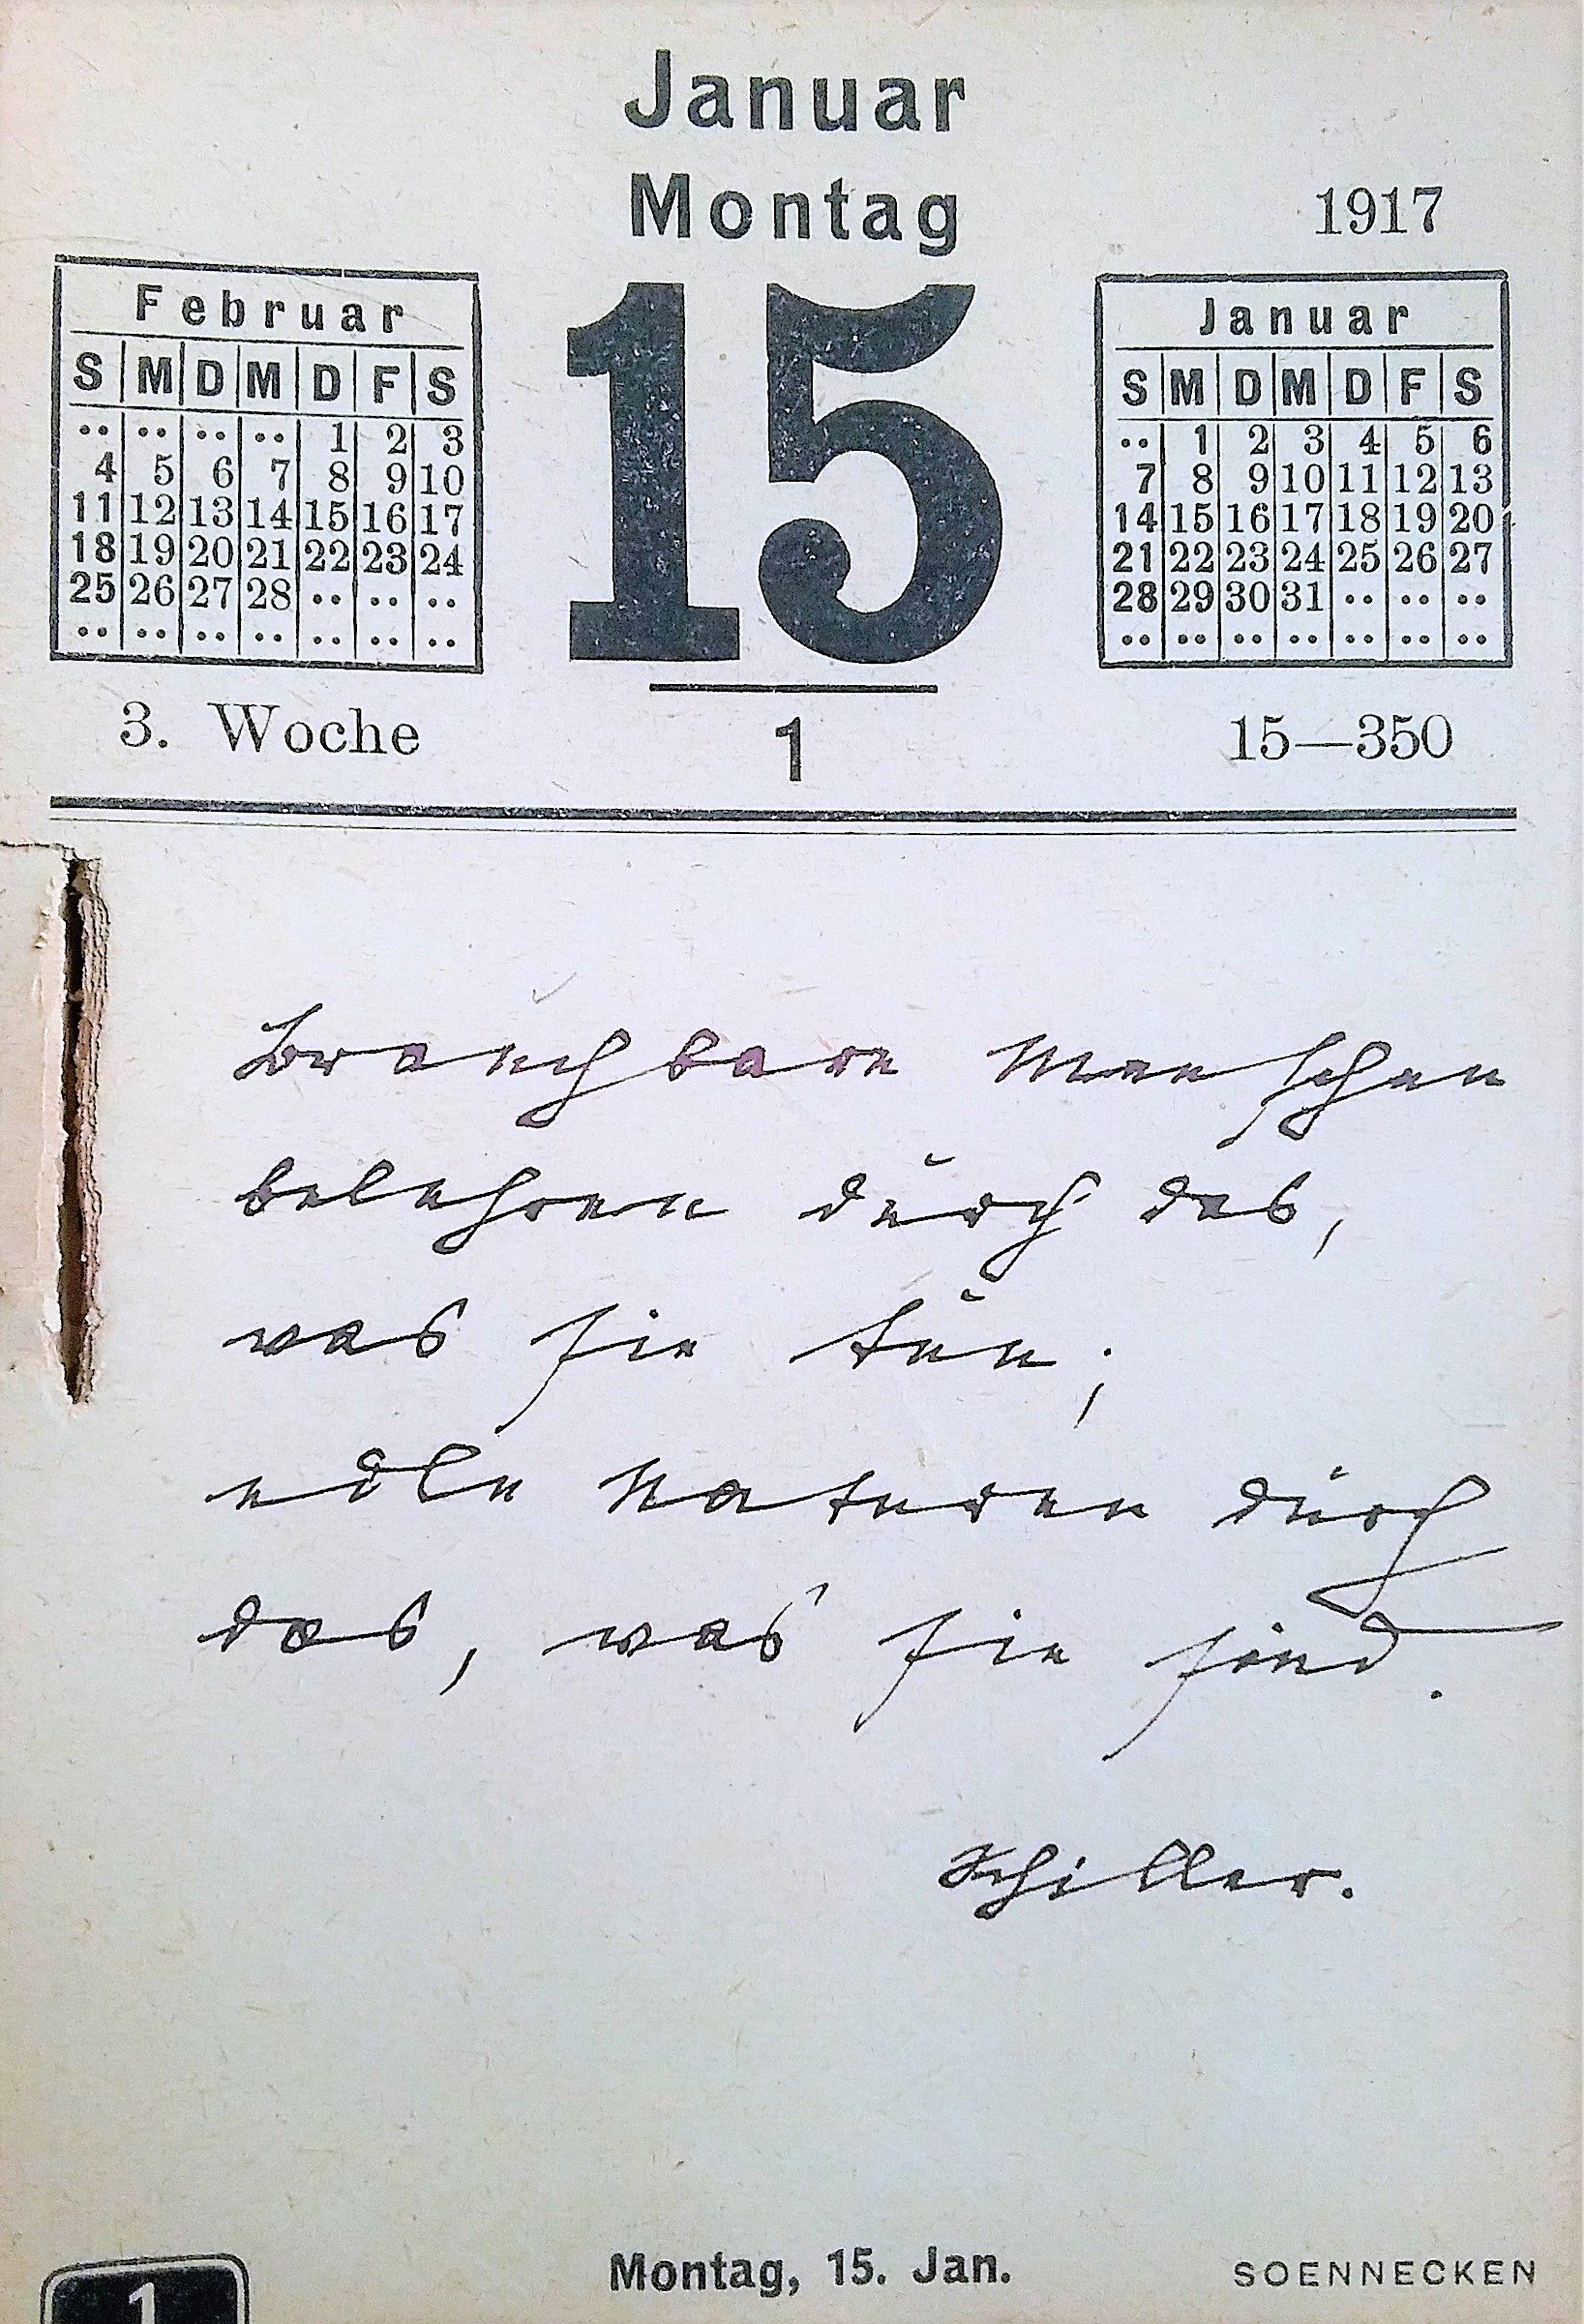 Januar
Montag
1917
Februar
S M D M D F S
.. .. .. .. 1 2 3
4 5 6 7 8 9 10
11 12 13 14 15 16 17
18 19 20 21 22 23 24
25 26 27 28 .. .. ..
.. .. .. .. .. .. ..
15
Januar
S M D M D F S
.. 1 2 3 4 5 6
7 8 9 10 11 12 13
14 15 16 17 18 19 20
21 22 23 24 25 26 27
28 29 30 31 .. .. ..
.. .. .. .. .. .. ..
3. Woche
1
15—350
Brauchbare Menschen
belehren durch das,
was sie tun;
edle Naturen durch
das, was sie sind.
Schiller.
1
Montag, 15. Jan.
SOENNECKEN